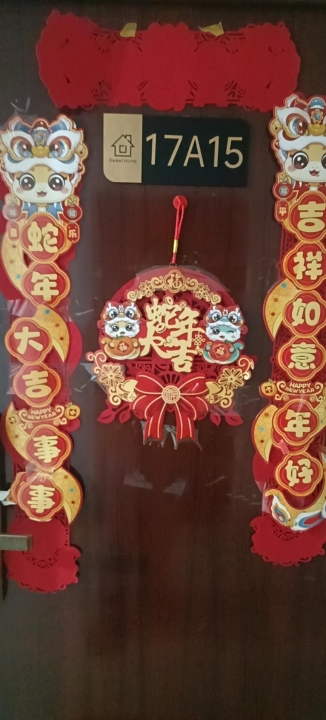 Sweet Home
17A15
吉祥如意年好
HAPPY
NEW YEAR
蛇年大吉事事
HAPPY
NEW YEAR
福
蛇年
大吉